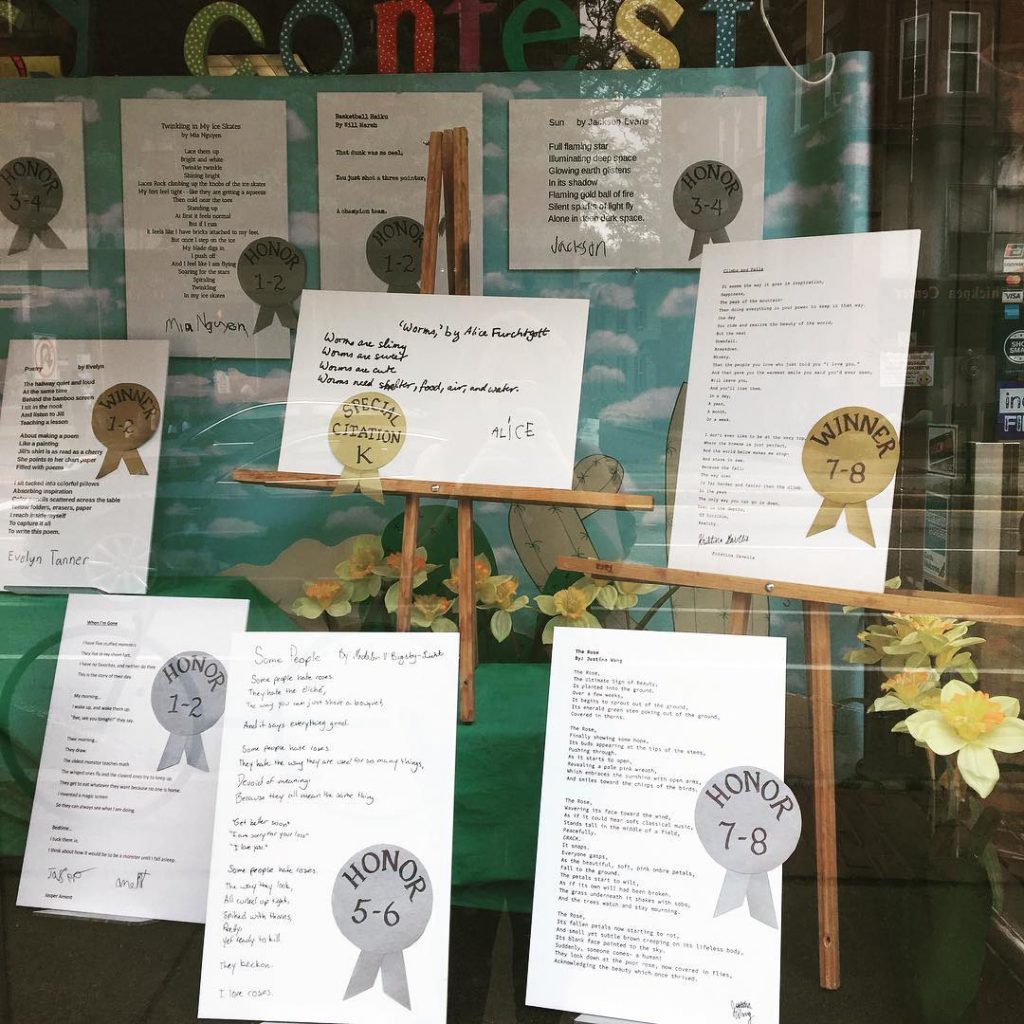 contest
HONOR
3-4
Twinkling in My Ice Skates
by Mia Nguyen
Lace them up
Bright and white
Twinkle twinkle
Shining bright
Laces Rock climbing up the knobs of the ice skates
My feet feel tight--like they are getting a squeeze
Then cold near the toes
Standing up
At first it feels normal
But if I run
It feels like I have bricks attached to my feet.
But once I step on the ice
My blade digs in
I push off
And I feel like I am flying
Soaring for the stars
Spiraling
Twinkling
In my ice skates
Mia Nguyen
HONOR
1-2
Basketball Haiku
By Will Marsh
That dunk was so neal,
You just shot a three pointer,
A champion team.
HONOR
1-2
Sun by Jackson Evans
Full flaming star
Illuminating deep space
Glowing earth glistens
In its shadow
Flaming gold ball of fire
Silent sparks of light fly
Alone in deep dark space.
Jackson
HONOR
3-4
Poetry by Evelyn
The hallway quiet and loud
At the same time
Behind the bamboo screen
I sit in the nook
And listen to Jill
Teaching a lesson
About making a poem
Like a painting
Jill's shirt is as read as a cherry
She points to her chart paper
Filled with poems
I sit tucked into colorful pillows
Absorbing inspiration
Color pencils scattered across the table
Yellow folders, erasers, paper
I reach inside myself
To capture it all
To write this poem.
Evelyn Tanner
WINNER
1-2
"Worms," by Alice Furchtgott
Worms are slimy
Worms are sweet
Worms are cute
Worms need shelter, food, air, and water.
ALiCE
SPECIAL
CITATION
K
Climbs and Falls
It seems the way it goes is inspiration,
Happiness,
The peak of the mountain-
Then doing everything in your power to keep it that way.
One day
You ride and realize the beauty of the world,
But the next
Downfall.
Breakdown.
Misery.
That the people you love who just told you "I love you."
And that gave you the warmest smile you said you'd ever seen,
Will leave you,
And you'll lose them.
In a day,
A year,
A month,
Or a week.
I don't even like to be at the very top,
Where the breeze is just perfect,
And the world below makes me stop-
And stare in awe.
Because the fall-
The way down
Is far harder and faster than the climb.
In the years
The only way you can go is down.
Down to the depths,
Of horrible,
Reality.
WINNER
7-8
VISA
When I'm Gone
I have five stuffed monsters
They live in my short fort,
I have no favorites, and neither do they
This is the story of their day
My morning...
I wake up, and wake them up.
"Bye, see you tonight!" they say.
Their morning...
They draw.
The oldest monster teaches math
The winged ones fly and the clawed ones try to keep up
They get to eat whatever they want because no one is home.
I invented a magic screen
So they can always see what I am doing.
Bedtime...
I tuck them in,
I think about how it would be to be a monster until I fall asleep.
Jasper Ament
HONOR
1-2
Some People By
Some people hate roses.
They hate the cliché,
The way you can just shove a bouquet,
And it says everything good.
Some people hate roses.
They hate the way they are used for so many things,
Devoid of meaning
Because they all mean the same thing
"Get better soon"
"I am sorry for your loss"
"I love you."
Some people hate roses.
The way they look,
All curled up tight,
Spiked with thorns,
Pretty
Yet ready to kill
They beckon.
I love roses.
HONOR
5-6
The Rose
By: Justina Wang
The Rose,
The Ultimate Sign of Beauty,
Is planted into the ground.
Over a few weeks,
It begins to sprout out of the ground,
Its emerald green stem poking out of the ground,
Covered in thorns.
The Rose,
Finally showing some hope,
Its buds appearing at the tips of the stems,
Pushing through.
As it starts to open,
Revealing a pale pink wreath,
Which embraces the sunshine with open arms,
And smiles toward the chirps of the birds.
The Rose,
Wavering its face toward the wind,
As if it could hear soft classical music,
Stands tall in the middle of a field,
Peacefully.
CRACK.
It snaps.
Everyone gasps,
As the beautiful, soft, pink ombre petals,
Fall to the ground.
The petals start to wilt,
As if its own will had been broken,
The grass underneath it shakes with sobs,
And the trees watch and stay mourning.
The Rose,
Its fallen petals now starting to rot,
And small yet subtle brown creeping on its lifeless body,
Its blank face pointed to the sky,
Suddenly, someone comes- a human!
They look down at the poor rose, now covered in flies,
Acknowledging the beauty which once thrived.
HONOR
7-8